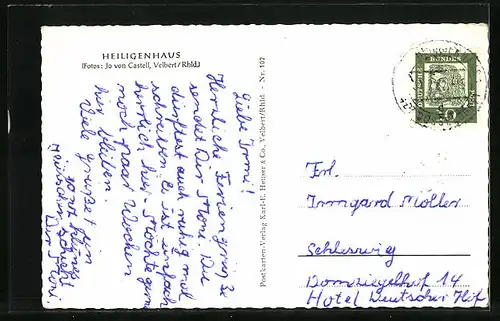 HEILIGENHAUS
(Fotos: Jo von Castell, Velbert/Rhld.)
Liebe Irmi!
Herrliche Feriengrüße
sendet Dir Moni. Du
dürftest auch ruhig mal
schreiben. Es ist einfach
herrlich hier. Möchte gern
noch paar Wochen
hier bleiben.
Viele Grüße
Dir Moni.
Postkarten-Verlag Karl-E. Heuser & Co., Velbert/Rhld. - Nr. 102
DEUTSCHE BUNDESPOST
10
Frl.
Irmgard Möller
Schleswig
Domziegelhof 14
Hotel Deutscher Hof